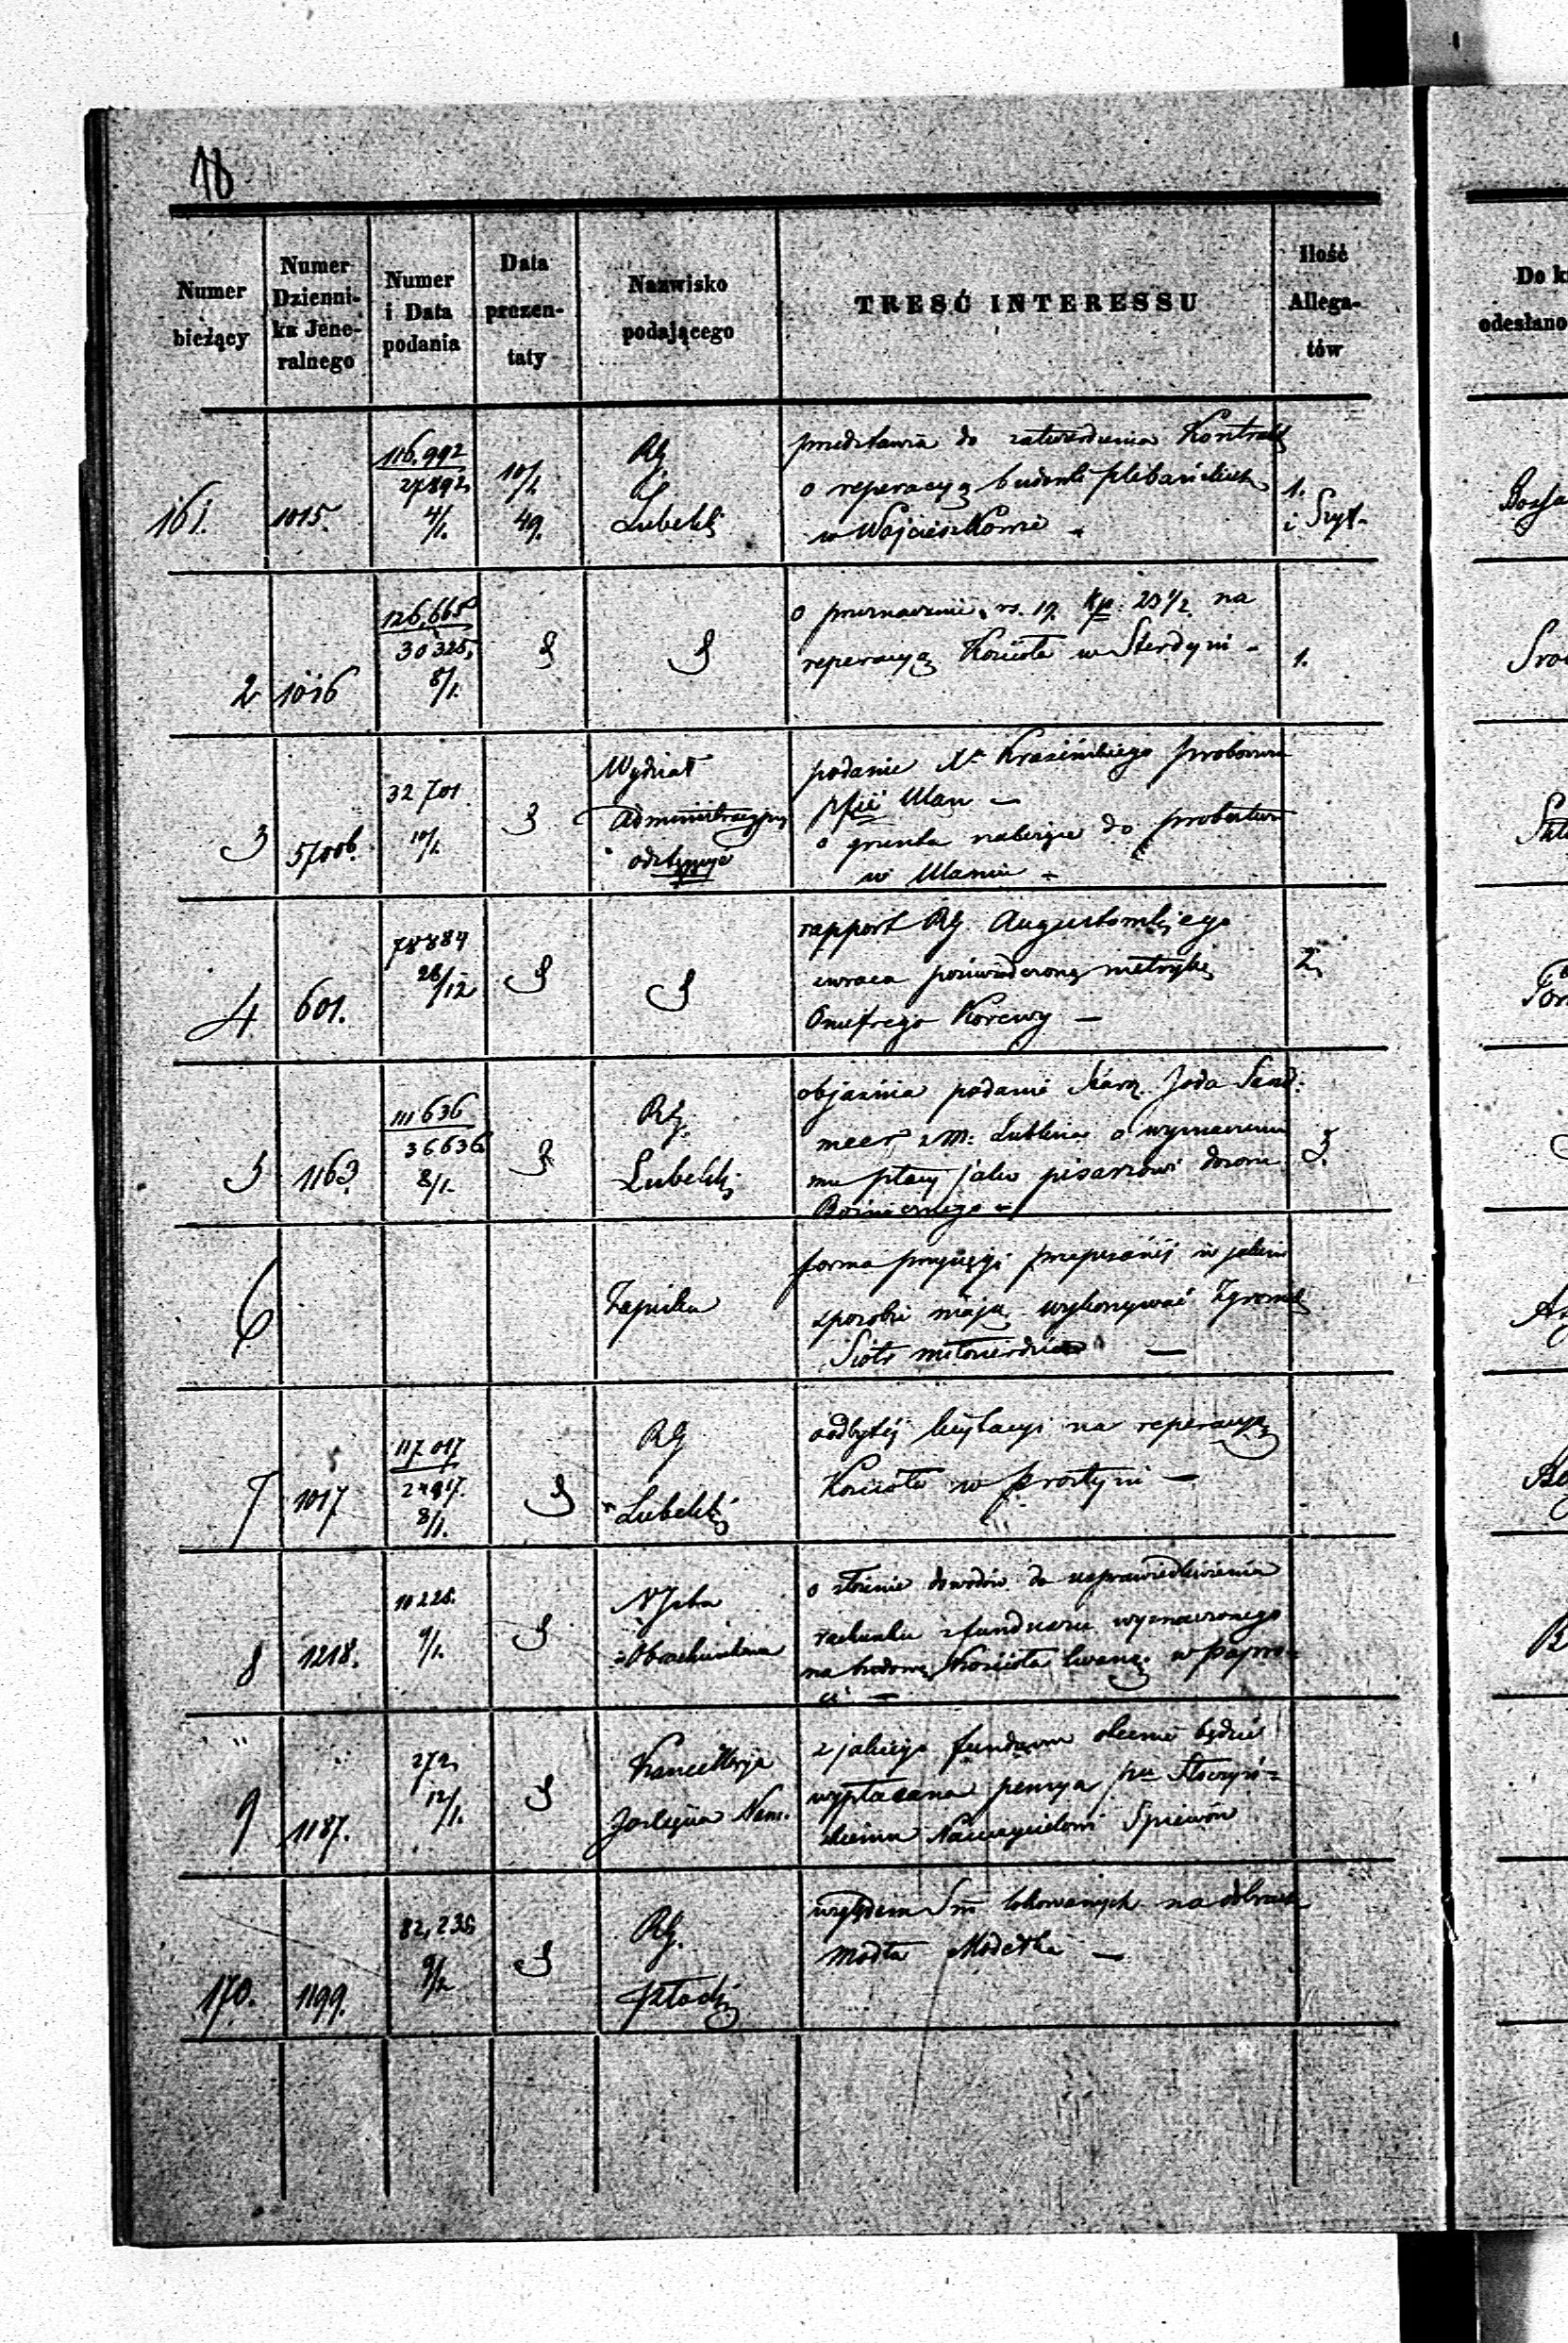 18
Numer bieżący
Numer Dzienni-ka Jene-ralnego
Numer i Data podania
Data prezen-taty
Nazwisko podającego
TREŚĆ INTERESSU
Ilość Allega-tów
Do k
odesłano
161.
1015.
116.992
27892
4/1.
10/1
49.
RG.
Lubelski
przedstawia do zatwierdzenia Kontrakt
o reperacyą budowli plebańskich
w Wojcieszkowie -
1.
i Szyt.
2
1016
126,665
30325,
8/1.
o przeznaczenie rs. 19 kp. 23 1/2 na
reperacyą Kościoła w Sterdyni -
1.
3
57006.
32701
10/1.
Wydział
Administracyjny
odstępuje
podanie Xa Krasińskiego proboszcza
pfii Ulan -
o grunta należące do probostwa
w Ulanie -
4.
601.
78884
28/12
rapport RG. Augustowskiego
zwraca poświadczoną metrykę
Onufrego Korewy -
2
5
1163.
111636
36636
8/1.
RG.
Lubelski
objaśnia podanie Joda
z m. Lublina o wyznaczenie
mu płacy jako pisarzowi dozoru
Bożniczego -
3.
6
Zapiska
forma przysięgi przepisanéj w jakim
sposobie mają wykonywać Zgrom.
Sióstr miłosierdzia -
7
1017
117017
8/1.
RG
Lubelski
o odbytéj licytacyi na reperacyą
Kościoła w Prostyni -
8
1218.
10225.
9/1.
N Izba
Obrachunkowa
o złożenie dowodów do usprawiedliwienia
rachunku z funduszu wyznaczonego
na budowę Kościoła Ewang. w Papro-
ci -
9
1187.
272
12/1.
Kancellarja
z jakiego funduszu obecnie będzie
wypłacana pensya
skiemu Nauczycielowi Spiewów
170.
1199.
82,236
9/2
RG.
Płocki
względem Sm lokowanych na dobrach
Modła Modełka -